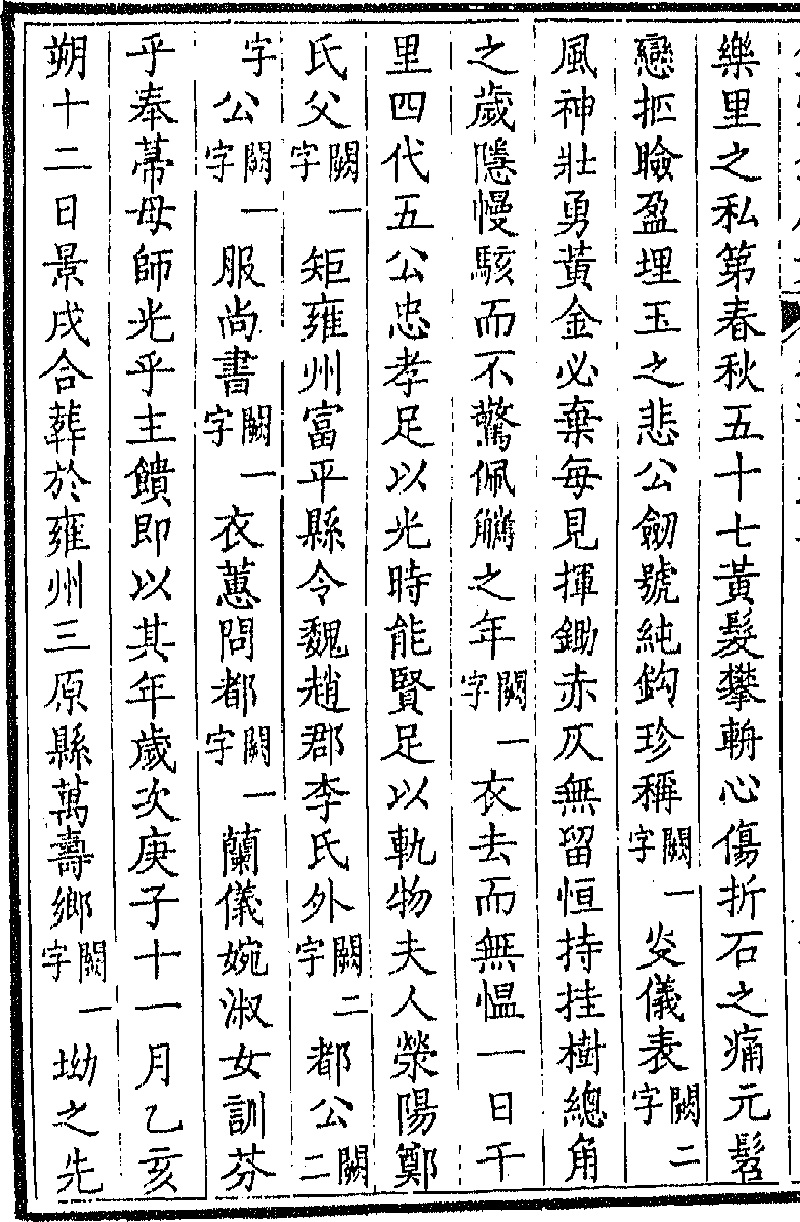 樂里之私第春秋五十七黃髮攀輀心傷折石之痛元髫
戀抠瞼盈埋玉之悲公劒號純鈎珍稱闕一字炎儀表闕二字
風神壯勇黃金必棄每見揮鋤赤仄無留恒持挂樹總角
之歲隱慢駭而不驚佩觿之年闕一字衣去而無愠一日千
里四代五公忠孝足以光時能賢足以軌物夫人滎陽鄭
氏父闕一字矩雍州富平縣令魏趙郡李氏外闕二字都公闕二
字公闕一字服尚書闕一字衣蕙問都闕一字蘭儀婉淑女訓芬
乎奉蒂母師光乎主饋即以其年歲次庚子十一月乙亥
朔十二日景戌合葬於雍州三原縣萬壽鄉闕一字坳之先